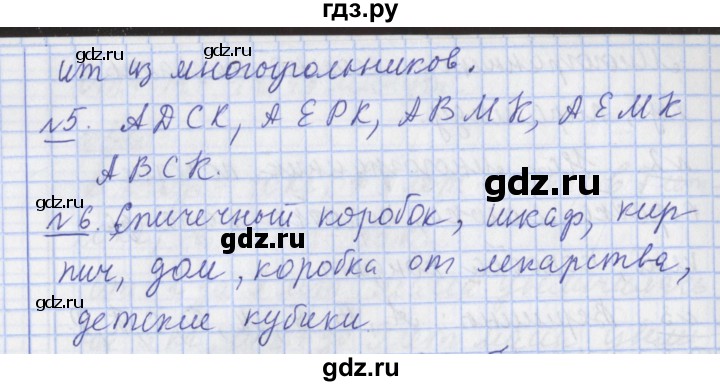 гдз.ру
gdz.ru gdz.ru gdz.ru
ит из многоугольников.
№5. АДСК, АЕРК, АВМК, АЕМК
АВСК.
gdz.ru gdz.ru
№6. Спичечный коробок, шкаф, кир-
gdz.ru gdz.ru gdz.ru
пич, дом, коробка от лекарства,
детские кубики
gdz.ru gdz.ru gdz.ru